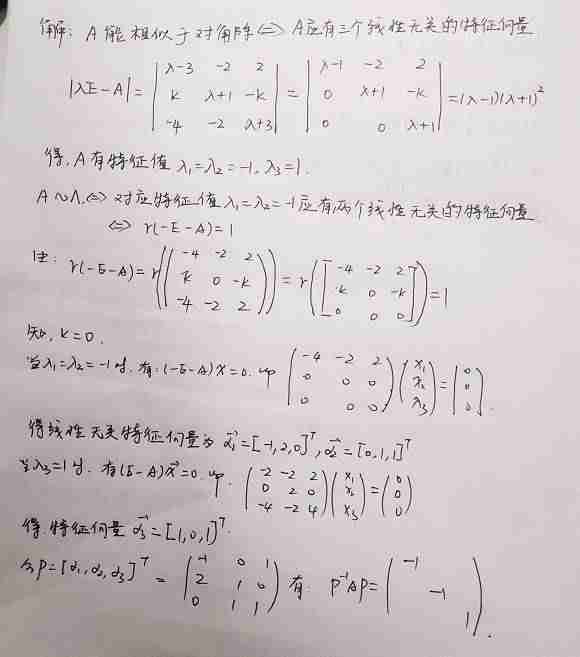 解: A能相似于对角阵⇔A应有三个线性无关的特征向量
|λE-A| = | λ-3 -2 2 ; k λ+1 -k ; -4 -2 λ+3 | = | λ-1 -2 2 ; 0 λ+1 -k ; 0 0 λ+1 | = (λ-1)(λ+1)²
得, A有特征值 λ₁=λ₂=-1, λ₃=1.
A~Λ ⇔ 对应特征值 λ₁=λ₂=-1应有两个线性无关的特征向量
⇔ r(-E-A)=1
由: r(-E-A)=r(( -4 -2 2 ; k 0 -k ; -4 -2 2 )) = r([ -4 -2 2 ; k 0 -k ; 0 0 0 ]) = 1
知, k=0.
当λ₁=λ₂=-1时, 有: (-E-A)x=0. 即 ( -4 -2 2 ; 0 0 0 ; 0 0 0 )( x₁ ; x₂ ; x₃ ) = ( 0 ; 0 ; 0 ).
得线性无关特征向量为 α₁=[-1,2,0]ᵀ, α₂=[0,1,1]ᵀ
当λ₃=1时. 有(E-A)x=0. 即. ( -2 -2 2 ; 0 2 0 ; -4 -2 4 )( x₁ ; x₂ ; x₃ ) = ( 0 ; 0 ; 0 )
得.特征向量 α₃=[1,0,1]ᵀ.
令P=[α₁,α₂,α₃]ᵀ = ( -1 0 1 ; 2 1 0 ; 0 1 1 ) 有: P⁻¹AP = ( -1 ; -1 ; 1 ).